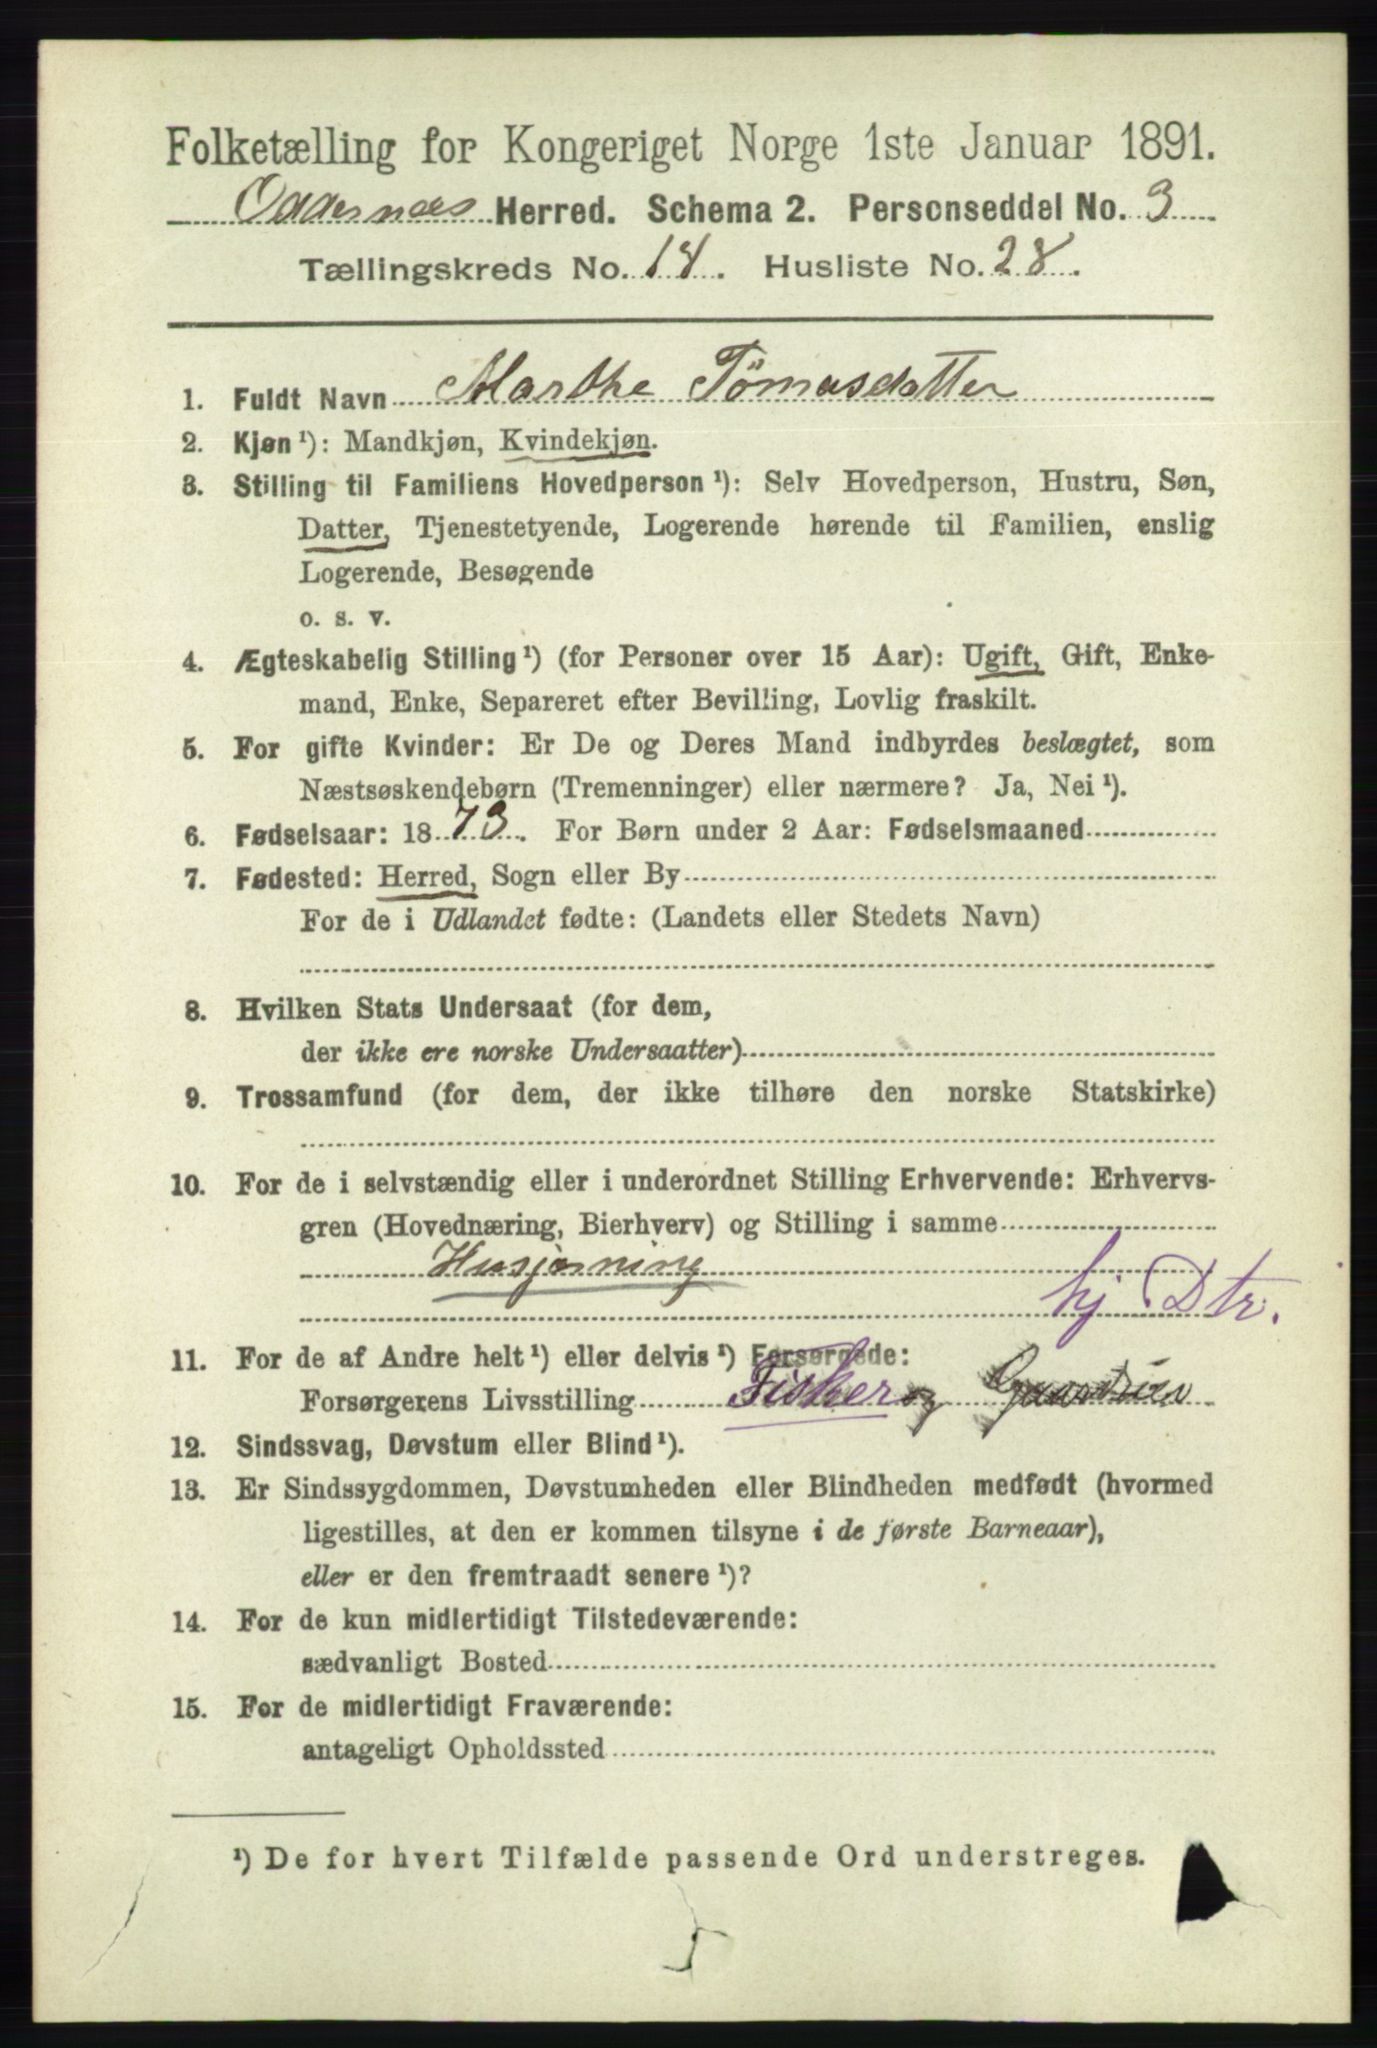 Folketælling for Kongeriget Norge 1ste Januar 1891.
Oddernæs Herred. Schema 2. Personseddel No. 3
Tællingskreds No. 14. Husliste No. 28.
1. Fuldt Navn Marthe Tömasdatter
2. Kjøn ¹): Mandkjøn, Kvindekjøn.
3. Stilling til Familiens Hovedperson ¹): Selv Hovedperson, Hustru, Søn,
Datter, Tjenestetyende, Logerende hørende til Familien, enslig
Logerende, Besøgende
o. s. v.
4. Ægteskabelig Stilling ¹) (for Personer over 15 Aar): Ugift, Gift, Enke-
mand, Enke, Separeret efter Bevilling, Lovlig fraskilt.
5. For gifte Kvinder: Er De og Deres Mand indbyrdes beslægtet, som
Næstsøskendebørn (Tremenninger) eller nærmere? Ja, Nei ¹).
6. Fødselsaar: 1873. For Børn under 2 Aar: Fødselsmaaned
7. Fødested: Herred, Sogn eller By
For de i Udlandet fødte: (Landets eller Stedets Navn)
8. Hvilken Stats Undersaat (for dem,
der ikke ere norske Undersaatter)
9. Trossamfund (for dem, der ikke tilhøre den norske Statskirke)
10. For de i selvstændig eller i underordnet Stilling Erhvervende: Erhvervs-
gren (Hovednæring, Bierhverv) og Stilling i samme
Husjerning
hj Dtr.
11. For de af Andre helt ¹) eller delvis ¹) Forsørgede:
Forsørgerens Livsstilling Fisker og
12. Sindssvag, Døvstum eller Blind ¹).
13. Er Sindssygdommen, Døvstumheden eller Blindheden medfødt (hvormed
ligestilles, at den er kommen tilsyne i de første Barneaar),
eller er den fremtraadt senere ¹)?
14. For de kun midlertidigt Tilstedeværende:
sædvanligt Bosted
15. For de midlertidigt Fraværende:
antageligt Opholdssted
¹) De for hvert Tilfælde passende Ord understreges.